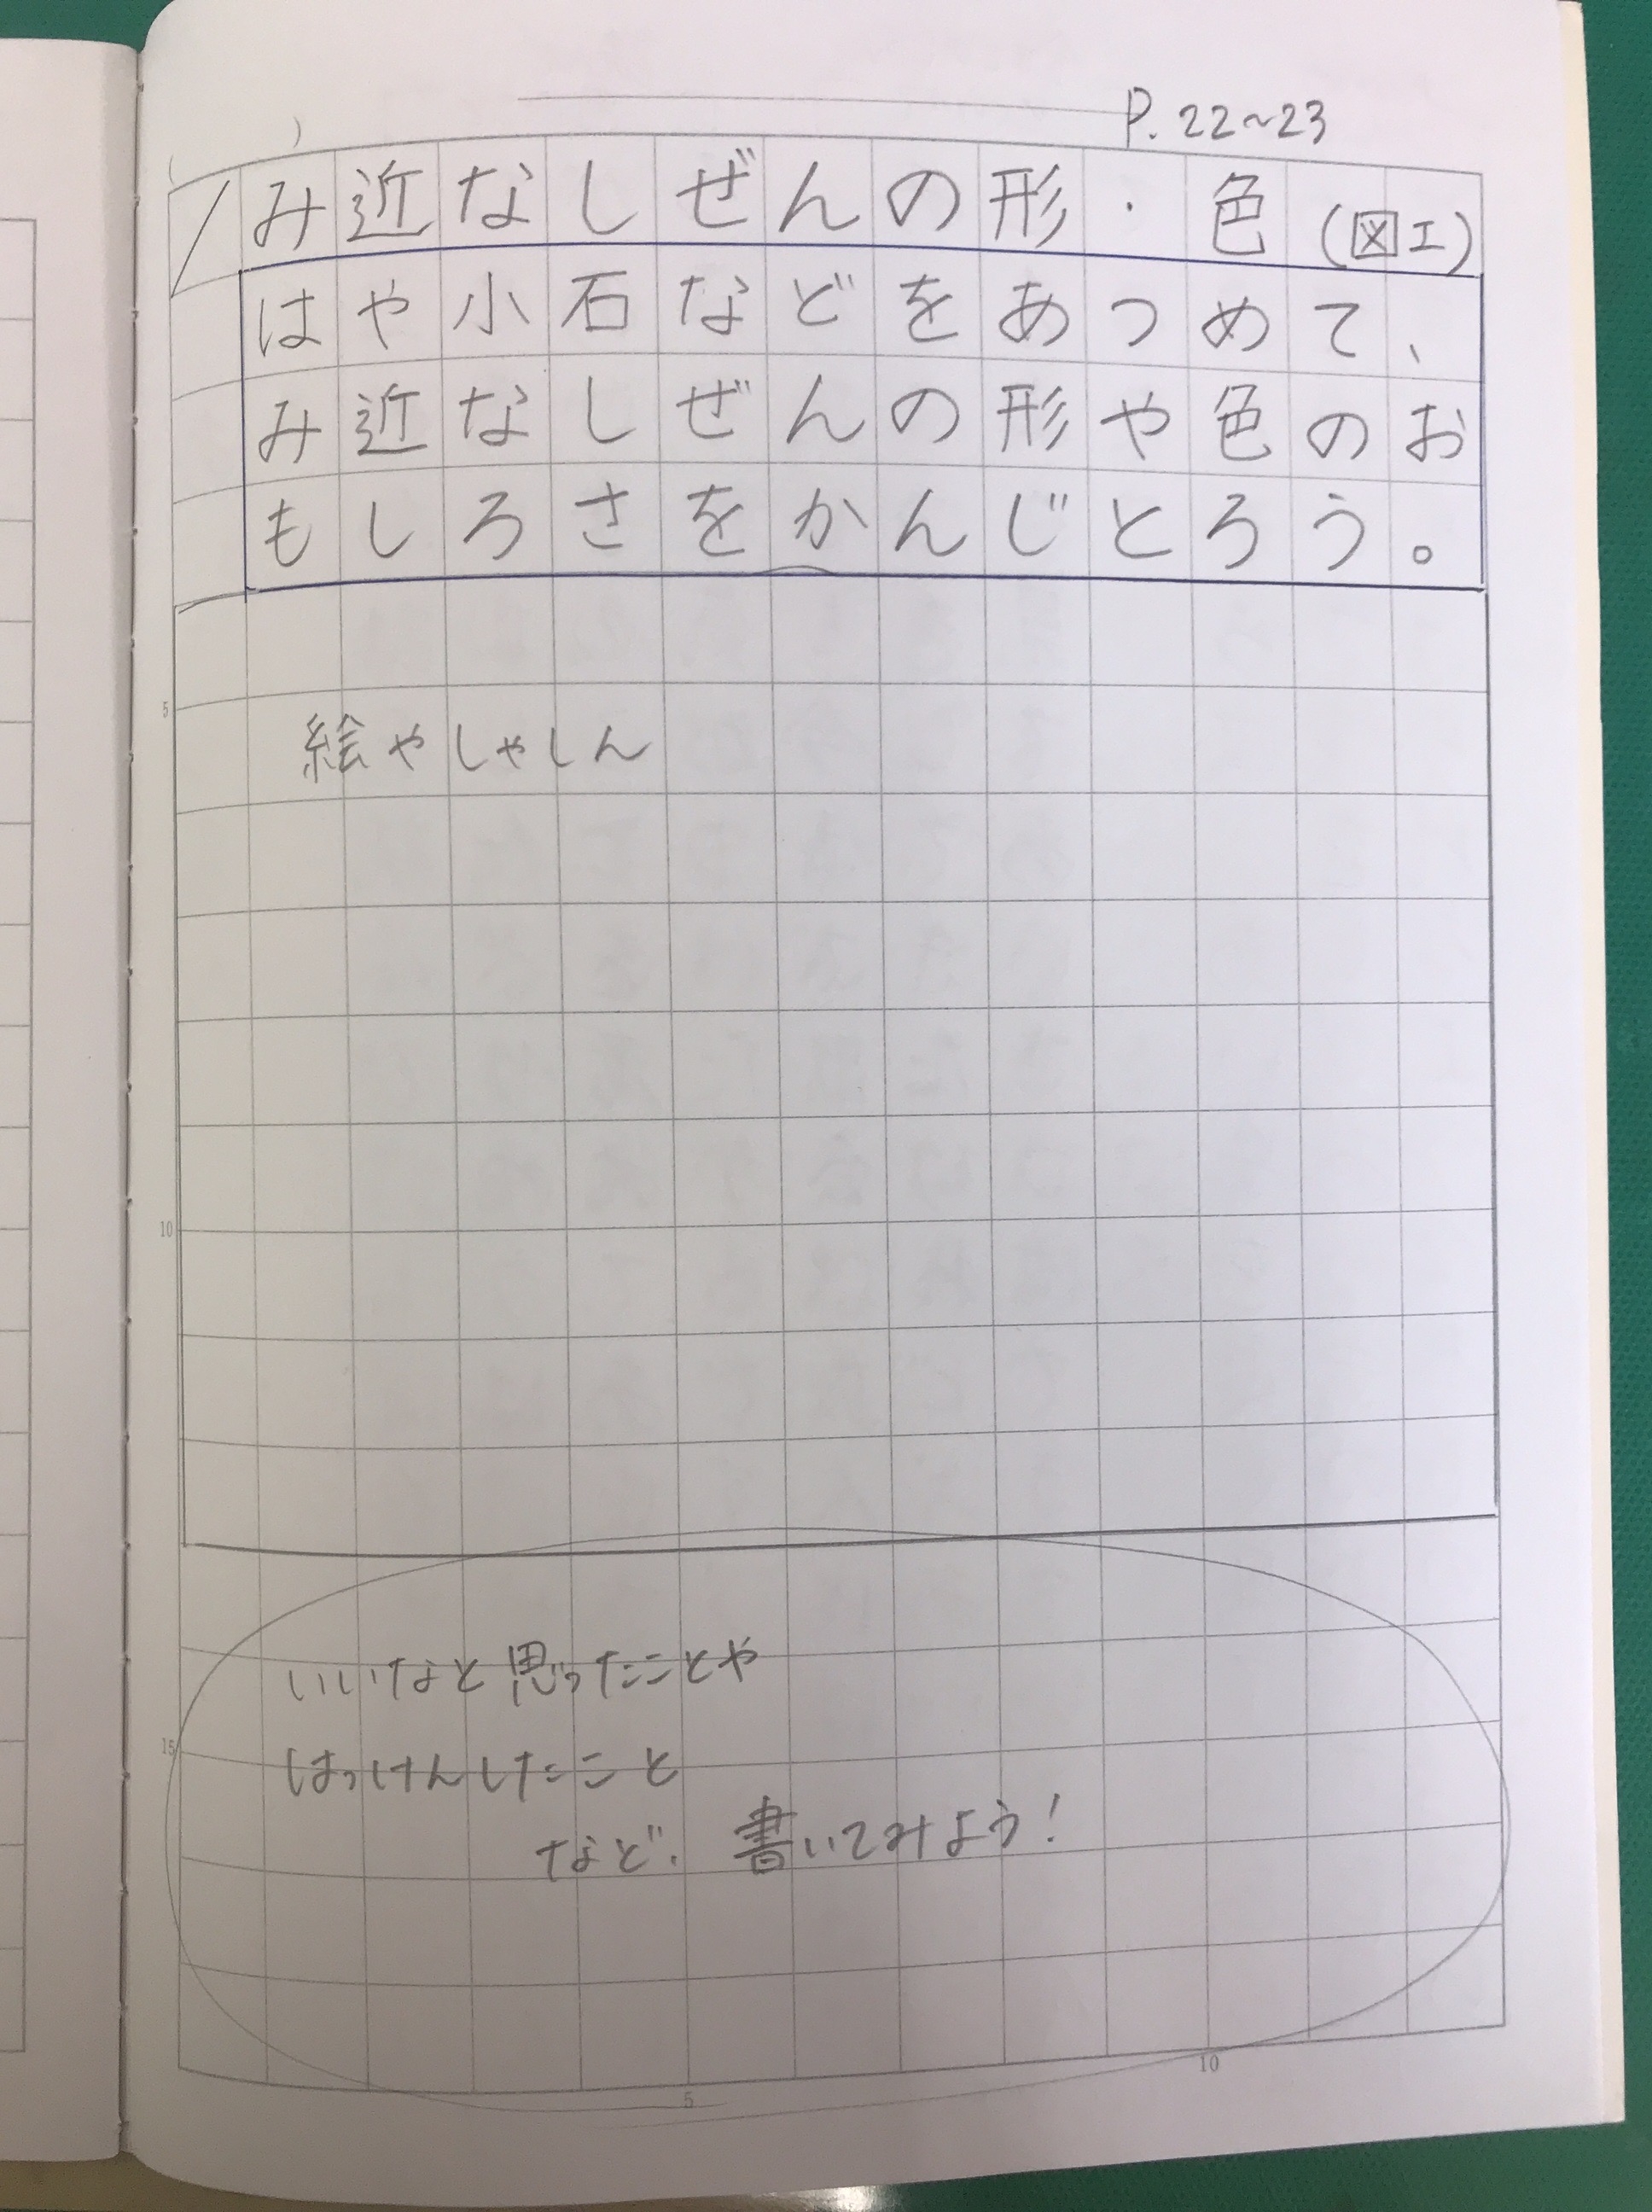 P. 22~23
み近なしぜんの形・色(図工)
はや小石などをあつめて、
み近なしぜんの形や色のお
もしろさをかんじとろう。
5
絵やしゃしん
10
いいなと思ったことや
15
はっけんしたこと
など、書いてみよう!
10
5